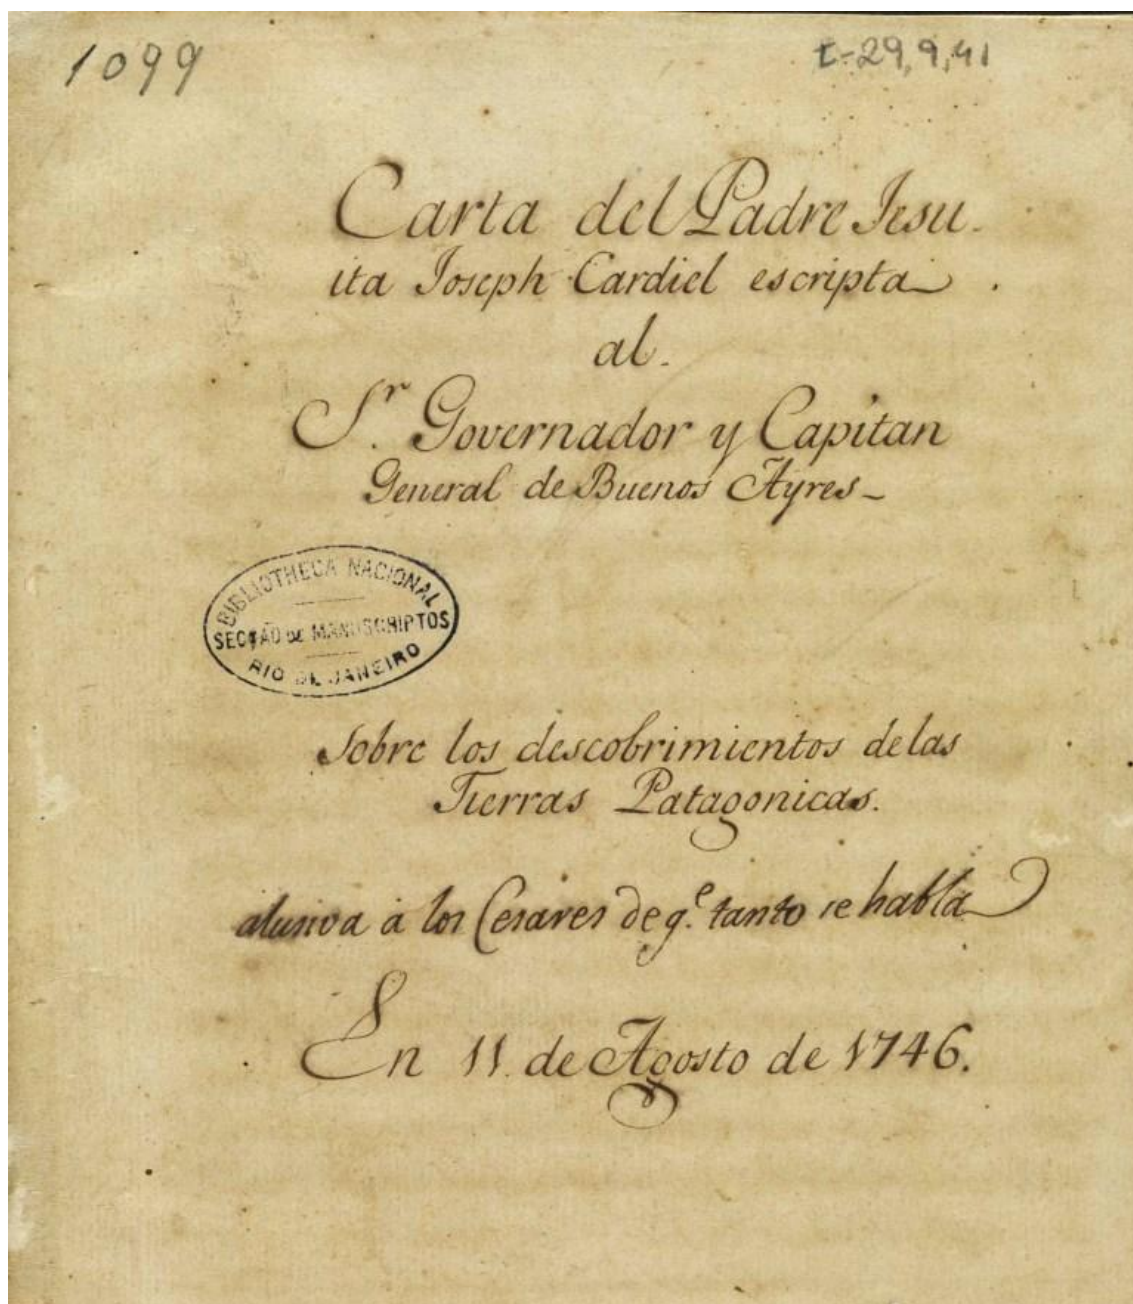 1099
I-29,9,41
Carta del Padre Jesu-
ita Joseph Cardiel escripta
al
Sr. Governador y Capitan
General de Buenos Ayres
BIBLIOTHECA NACIONAL
SECÇÃO DE MANUSCRIPTOS
RIO DE JANEIRO
Sobre los descobrimientos delas
Tierras Patagonicas.
alusiva à los Cesares de q.e tanto se habla
En 11 de Agosto de 1746.